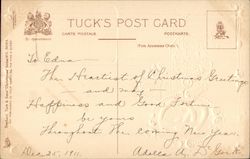 TUCK'S POST CARD
CARTE POSTALE
POSTKARTE
(FOR ADDRESS ONLY.)
To Edna
The Heartiest of Christmas Greetings
and may
Happiness and Good Fortune
be yours
Throughout The coming New Year.
Dec 25, 1911.
Adella A.